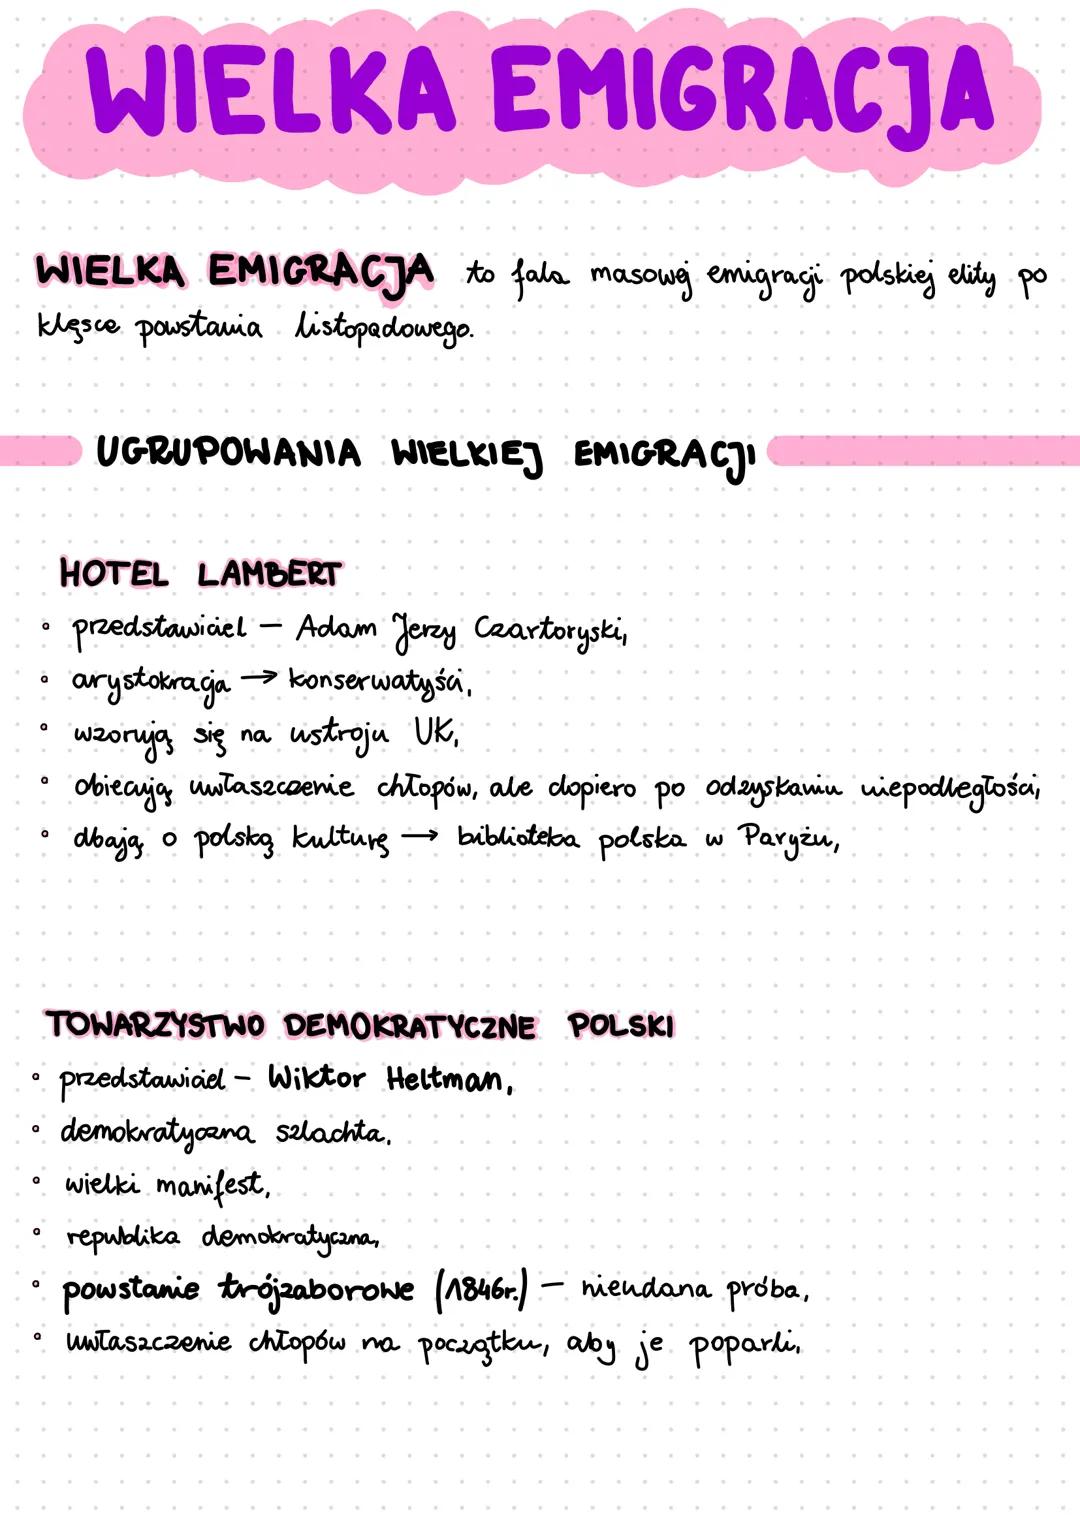 WIELKA EMIGRACJA
WIELKA EMIGRACJA to fala masowej emigracji polskiej elity po
klęsce powstania listopadowego.
UGRUPOWANIA WIELKIEJ EMIGRACJI
HOTEL LAMBERT
◦ przedstawiciel – Adam Jerzy Czartoryski,
◦ arystokracja → konserwatyści,
◦ wzorują się na ustroju UK,
◦ obiecują uwłaszczenie chłopów, ale dopiero po odzyskaniu niepodległości,
◦ dbają o polską kulturę → biblioteka polska w Paryżu,
TOWARZYSTWO DEMOKRATYCZNE POLSKI
◦ przedstawiciel – Wiktor Heltman,
◦ demokratyczna szlachta,
◦ wielki manifest,
◦ republika demokratyczna,
◦ powstanie trójzaborowe (1846r.) – nieudana próba,
◦ uwłaszczenie chłopów na początku, aby je poparli,